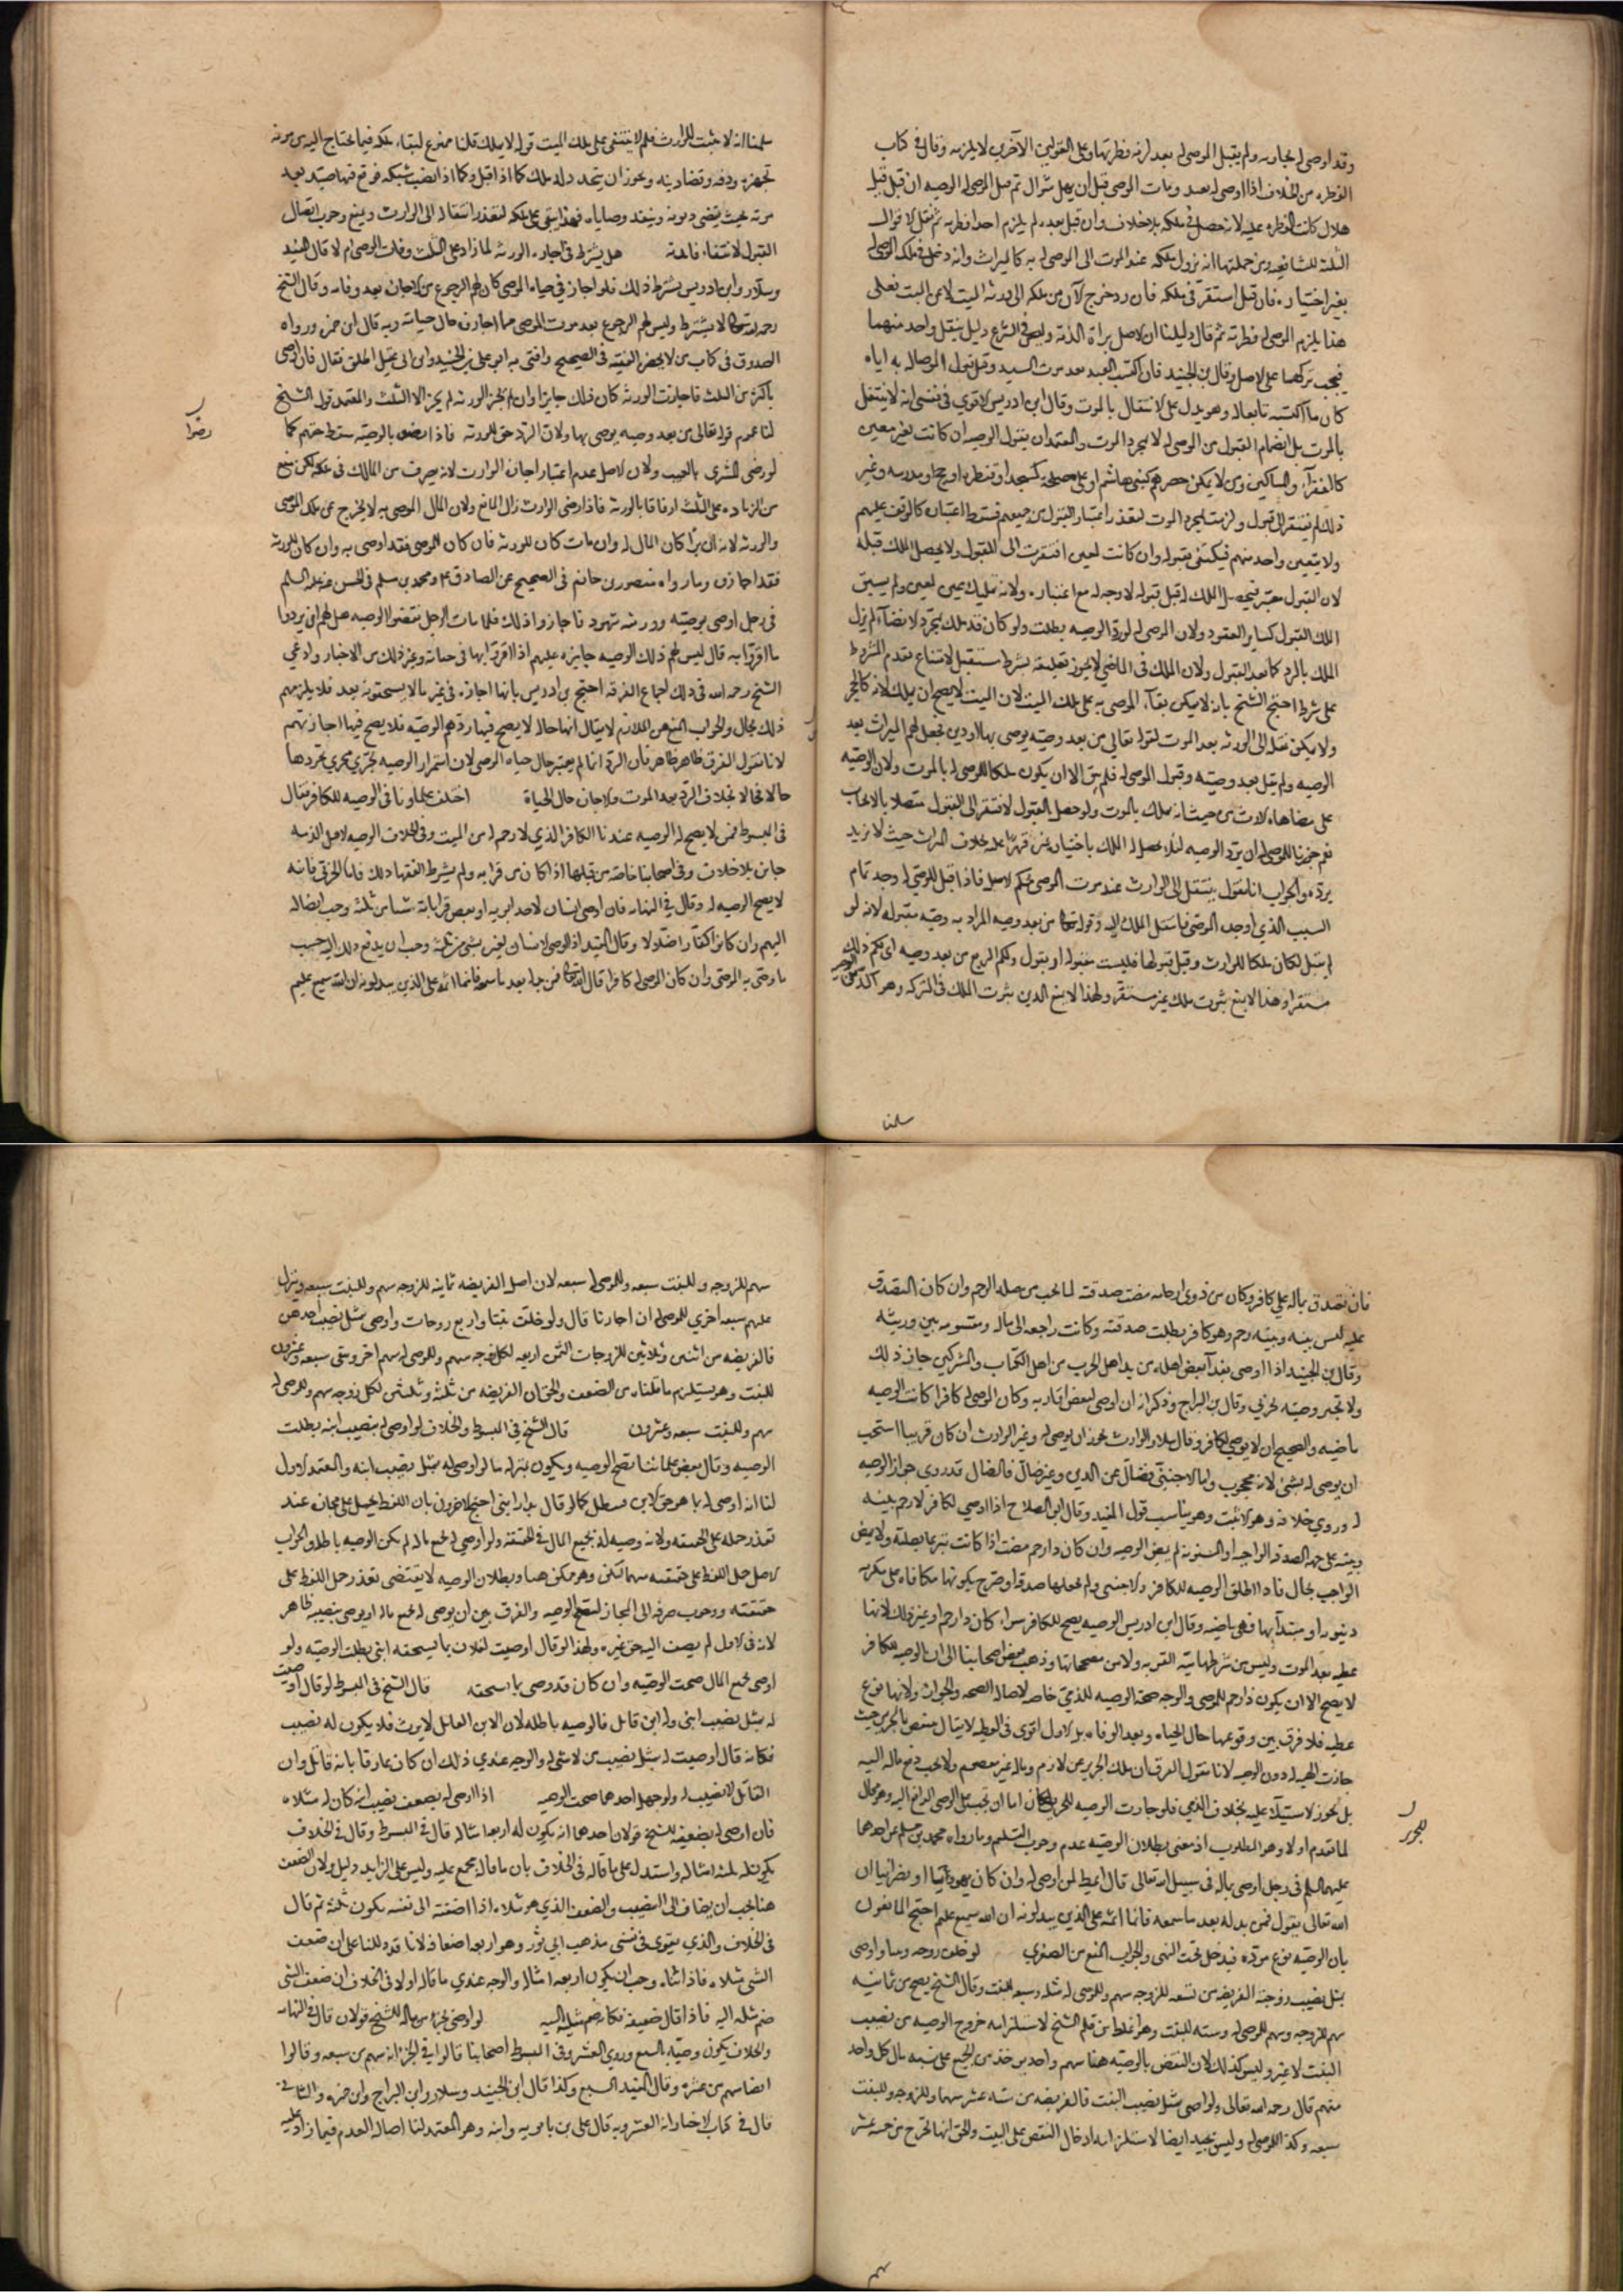 وقد اوصى له بجاريه ولم يقبل الموصى له بعد لزمه فطرتها وعلى القولين الآخرين لا يلزمه وقال في كتاب
الفطره من الخلاف اذا اوصى له بعبد ومات الموصى قبل ان يهل شوال ثم قبل الموصى له الوصيه ان قبل قبل
هلال كانت الفطره عليه لانه حصل في ملكه بلا خلاف وان قبل بعده لم يلزم احدا فطرته ثم نقل الاقوال
الثلثه للشافعيه ومن جملتها انه يزول ملكه عند الموت الى الموصى له به كالميراث وانه دخل في ملك الموصى له
بغير اختياره فان قبل استقر في ملكه فان رد خرج الآن من ملكه الى ورثه الميت لا عن الميت فعلى
هذا يلزم الموصى له فطرته ثم قال دليلنا ان الاصل براة الذمة وليس في الشرع دليل ينقل واحد منهما
فيجب تركهما على الاصل وقال بن الجنيد فان اكتسب العبد بعد موت السيد وقبل قبول الموصا له به اياه
كان ما اكتسبه تابعا له وهو يدل على الانتقال بالموت وقال ابن ادريس الاقوي في نفسى انه لا ينتقل
بالموت بل بانضمام القبول من الموصى له لا بمجرد الموت والمعتمد ان يقول الوصيه ان كانت لغير معين
كالفقرآء والمساكين ومن لا يمكن حصرهم كبنى هاشم او على مصلحة كمسجد او قنطره او حج او مدرسه وغير
ذلك لم يفتقر الى قبول ولزمت بمجرد الموت لتعذر اعتبار القبول من جميعهم فيسقط اعتباره كالوقف عليهم
ولا يتعين واحد منهم فيكتفى بقبوله وان كانت لمعين افتقرت الى القبول ولا يحصل الملك قبله
لان القبول معتبر فيحصل الملك له قبل قبوله لا وجه له مع اعتباره ولانه تمليك عين لمعين ولم يسبق
الملك القبول كسائر العقود ولان الموصى له لو رد الوصيه بطلت ولو كان قد ملك بمجرد الانقضآء لم يزل
الملك بالرد كما بعد القبول ولان الملك في الماضى لا يجوز تعليقه بشرط مستقبل لامتناع تقدم المشروط
على شرطه احتج الشيخ بانه لا يمكن بقآء الموصى به على ملك الميت لان الميت لا يصح ان يملك لانه كالحجر
ولا يمكن نقله الى الورثه بعد الموت لقوله تعالى من بعد وصيه يوصى بها او دين فجعل لهم الميراث بعد
الوصيه ولم يقل بعد وصيته وقبول الموصى له فلم يبق الا ان يكون ملكا للموصى له بالموت ولان الوصيه
على مضاهاه الارث من حيث انه ملك بالموت ولو حصل القبول لافتقر الى القبول متصلا بالايجاب
نعم جوزنا للموصى له ان يرد الوصيه لئلا يحصل له الملك باختيار غيره قهرا عليه بخلاف الميراث حيث لا يزيد
برده والجواب انا نقول ينتقل الى الوارث عند موت الموصى بحكم الاصل فاذا قبل الموصى له وجد تمام
السبب الذي اوجده الموصى فانتقل الملك اليه وقوله تعالى من بعد وصيه المراد به وصيه مقبوله لانه لو
لم يقبل لكان ملكا للوارث وقبل قبولها فليست مقبوله او يقول ولكم الربع من بعد وصيه اي لكم ذلك
مستقرا وهذا لا يمنع ثبوت ملك غير مستقر ولهذا لا يمنع الدين ثبوت الملك في التركه وهو آكد من الوصيه
سلمنا
سلمنا انه لا يثبت للوارث فلم لا يتبقى على ملك الميت قوله لا يملك قلنا ممنوع لبقاء ملكه فيما يحتاج اليه من مونه
تجهزه ودفنه وقضا دينه ويجوز ان يتجدد له ملك كما اذا قتل وكما اذا نصب شبكه فوقع فيها صيد بعد
موته بحيث يقضى ديونه وينفذ وصاياه فهذا يبقى على ملكه لتعذر انتقاله الى الوارث ويمنع وجوب اتصال
القبول لانتفاء فائدته هل يشترط في اجازه الورثه لما زاد على الثلث وفات الموصى ام لا قال المفيد
وسلار وابن ادريس يشترط ذلك فلو اجاز في حياه الموصى كان لهم الرجوع عن الاجازه بعد وفاته وقال الشيخ
رحمه الله تعالى لا يشترط وليس لهم الرجوع بعد موت الموصى مما اجازوه حال حياته وبه قال ابن حمزه ورواه
الصدوق في كتاب من لا يحضره الفقيه في الصحيح وافتى به ابو على بن الجنيد وابن ابى عقيل اطلق فقال فان اوصى
باكثر من الثلث فاجازت الورثه كان ذلك جايزا وان لم تجز الورثه لم يجز الا الثلث والمعتمد قول الشيخ
لنا عموم قوله تعالى من بعد وصيه يوصى بها ولان الرد حق للورثه فاذا رضوا بالوصيه سقط حقهم كما
لو رضى المشترى بالعيب ولان الاصل عدم اعتبار اجازه الوارث لانه تصرف من المالك في ملكه لكن منع
من الزياده على الثلث ارفاقا بالورثه فاذا رضى الوارث زال المانع ولان المال الموصى به لا يخرج عن ملك الموصى
والورثه لانه ان برأ كان المال له وان مات كان للورثه فان كان للموصى فقد اوصى به وان كان للورثه
فقد اجازوه وما رواه منصور بن حازم في الصحيح عن الصادق ع ومحمد بن مسلم في الحسن عنه عليه السلم
في رجل اوصى بوصيته وورثته شهود فاجازوا ذلك فلما مات الرجل نقضوا الوصيه هل لهم ان يردوا
ما اقروا به قال ليس لهم ذلك الوصيه جايزه عليهم اذا اقروا بها في حياته وغير ذلك من الاخبار وادعى
الشيخ رحمه الله في ذلك اجماع الفرقه احتج بن ادريس بانها اجازه في غير ما لا يستحقونه بعد فلا يلزمهم
ذلك بحال والجواب المنع من الملازمه لا يقال انها حاله لا يصح فيها ردهم الوصيه فلا يصح فيها اجازتهم
لانا نقول الفرق ظاهر فان الرد انما لم يعتبر حال حياه الموصى لان استمرار الوصيه يجري مجري تجددها
حالا فحالا بخلاف الرد بعد الموت والاجازه حال الحياة اختلف علماونا في الوصيه للكافر فقال
في المبسوط فمن لا يصح له الوصيه عندنا الكافر الذي لا رحم له من الميت وفي الخلاف الوصيه لاهل الذمه
جايزه بلا خلاف وفي اصحابنا خاصه من قيدها اذا كان من قرابه ولم يشرط الفقها ذلك فاما الحربي فانه
لا يصح الوصيه له وقال في النهايه فان اوصى انسان لاحد ابويه او بعض قرابته شيئا من ثلثه وجب ايصاله
اليهم وان كانوا كفارا ضلالا وقال المفيد اذا اوصى لانسان بشىء من ثلثه وجب ان يدفع ذلك اليه حسب
ما وصى به الموصى وان كان الموصى له كافرا قال الله تعالى فمن بدله بعد ما سمعه فانما اثمه على الذين يبدلونه ان الله سميع عليم
رضوا
فان تصدق بماله على كافر وكان من ذوى ارحامه مضت صدقته لما يجب من صله الرحم وان كان المتصدق
عليه ليس بينه وبينه رحم وهو كافر بطلت صدقته وكانت راجعه الى ماله ومقسومه بين ورثته
وقال بن الجنيد اذا اوصى بفدآ بعض اهله من يد اهل الحرب من اهل الكتاب والمشركين جاز ذلك
ولا تجبر وصيته لحربي وقال بن البراج وذكر انه ان اوصى لبعض اقاربه وكان الموصى له كافرا كانت الوصيه
ماضيه والصحيح ان لا يوصى لكافر وقال سلار والوارث يجوز ان يوصى له وغير الوارث ان كان قريبا استحب
ان يوصى له بشىء لانه محجوب واما الاجنبى فضال عن الدين وغير ضال فالضال قد روى جواز الوصيه
له وروي خلافه وهو الاثبت وهو يناسب قول المفيد وقال ابو الصلاح اذا اوصى لكافر لا رحم بينه
وبينه على جهه الصدقه الواجبه او المسنونه لم يمض الوصيه وان كان ذا رحم مضت اذا كانت تبرعا بصلته ولا يمض
الواجب بحال فاذا اطلق الوصيه للكافر ولاجنبى ولم يجعلها صدقة او صرح بكونها مكافاه على مكرمه
دينويه او مبتدآ بها فهى ماضيه وقال ابن ادريس الوصيه يصح للكافر سواء كان ذا رحم او غير ذلك لانها
عطيه بعد الموت وليس من شرطها نيه القربه ولا من مصححاتها وذهب بعض اصحابنا الى ان الوصيه للكافر
لا يصح الا ان يكون ذا رحم للموصى والوجه صحة الوصيه للذمى خاصه لاصاله الصحه والجواز ولانها نوع
عطيه فلا فرق بين وقوعها حال الحياه وبعد الوفاه بل الاول اقوى في العطيه لا يقال ينتقض بالحربى حيث
جازت الهبه له دون الوصيه لانا نقول الفرق ان ملك الحربى غير لازم وماله غير معصوم ولا يجب دفع ماله اليه
بل يجوز الاستيلآء عليه بخلاف الذمى فلو جازت الوصيه للحربى لكان اما ان يجب على الوصى الدفع اليه وهو محال
لما تقدم او لا وهو المطلوب اذ معنى بطلان الوصيه عدم وجوب التسليم وما رواه محمد بن مسلم عن احدهما
عليهما السلم في رجل اوصى بماله في سبيل الله تعالى قال اعطه لمن اوصى له وان كان يهوديا او نصرانيا ان
الله تعالى يقول فمن بدله بعد ما سمعه فانما اثمه على الذين يبدلونه ان الله سميع عليم احتج المانعون
بان الوصيه نوع مودة فيدخل تحت النهى والجواب المنع من الصغرى لو خلف زوجه وبنتا واوصى
بمثل نصيب زوجته الفريضه من تسعه للزوجه سهم وللموصى له مثله وسبعه للبنت وقال الشيخ يصح من ثمانيه
سهم للزوجه وسهم للموصى له وسته للبنت وهو غلط من قلم الشيخ لاستلزامه خروج الوصيه من نصيب
البنت لا غير وليس كذلك لان النقص بالوصيه هنا سهم واحد من خذ من الجميع على نسبه مال كل واحد
منهم قال رحمه الله تعالى ولو اوصى بمثل نصيب البنت فالفريضه من سته عشر سهما وللزوجه وللبنت
سبعه وكذا للموصى له وليس بجيد ايضا لاستلزامه ادخال النقص على البنت والحق انها تخرج من خمسه عشر
للحربى
سهم
سهم للزوجه وللبنت سبعه وللموصى له سبعه لان اصل الفريضه ثمانيه للزوجه سهم وللبنت سبعه وتزل
عليهم سبعه اخري للموصى له ان اجازنا قال ولو خلف بنتا واربع زوجات واوصى بمثل نصيب احدهن
فالفريضه من اثنين وثلاثين للزوجات الثمن اربعه لكل زوجه سهم وللموصى له سهم اخر ويبقى سبعه وعشرون
للبنت وهو يستلزم ما قلناه من الضعف والحق ان الفريضه من ثلثه وثلثين لكل زوجه سهم وللموصى له
سهم وللبنت سبعه وعشرون قال الشيخ في المبسوط والخلاف لو اوصى له بنصيب ابنه بطلت
الوصيه وقال بعض علمائنا يصح الوصيه ويكون بمنزله ما لو اوصى له بمثل نصيب ابنه والمعتمد الاول
لنا انه اوصى له بما هو حق لابن فبطل كما لو قال بدار ابنى احتج الاخرون بان اللفظ يحمل على مجازه عند
تعذر حمله على الحقيقه ولانه وصيه له بجميع المال في الحقيقه ولو اوصى له بجميع ماله لم يكن الوصيه باطله والجواب
الاصل حمل اللفظ على حقيقته مهما امكن وهو ممكن هنا وبطلان الوصيه لا يقتضى تعذر حمل اللفظ على
حقيقته ووجوب صرفه الى المجاز لتصح الوصيه والفرق بين ان يوصى له بجميع ماله او يوصى بنصيبه ظاهر
لانه في الاول لم يضف اليه حق غيره ولهذا لو قال اوصيت لفلان بما يستحقه ابنى بطلت الوصيه ولو
اوصى بجميع المال صحت الوصيه وان كان قد وصى بما استحقه قال الشيخ في المبسوط لو قال اوصيت
له بمثل نصيب ابنى وله ابن قاتل فالوصيه باطله لان الابن القاتل لا يرث فلا يكون له نصيب
فكانه قال اوصيت له بمثل نصيب من لا شىء له والوجه عندي ذلك ان كان عارفا بانه قاتل وان
القاتل لا نصيب له ولو جهل احدهما صحت الوصيه اذا اوصى له بضعف نصيب ابنه كان له مثلاه
فان اوصى له بضعفيه للشيخ قولان احدهما انه يكون له اربعه امثاله قال في المبسوط وقال في الخلاف
يكون له ثلثه امثاله واستدل على ما قاله في الخلاف بان ما قاله مجمع عليه وليس على الزايد دليل ولان الضعف
هنا يجب ان يضاف الى النصيب والضعف الذي هو مثلاه اذا اضفته الى نفسه يكون ثلثه ثم قال
في الخلاف والذي يقوى في نفسى مذهب ابي ثور وهو اربعه اضعافه لانا قد دللنا على ان ضعف
الشى مثلاه فاذا ثناه وجب ان يكون اربعه امثاله والوجه عندي ما قاله اولا في الخلاف ان ضعف الشى
ضم مثله اليه فاذا قال ضعيفه فكانه ضم مثليه اليه لو اوصى بجزء من ماله للشيخ قولان قال في النهايه
والخلاف يكون وصيه بالسبع وروي العشر وفي المبسوط اصحابنا قالوا في الجزء انه سهم من سبعه وقالوا
ايضا سهم من عشره وقال المفيد السبع وكذا قال ابن الجنيد وسلار وابن البراج وابن حمزه والثاني
قال في كتاب الاخبار انه العشر وبه قال على بن بابويه وابنه وهو المعتمد لنا اصاله العدم فيما زاد عليه